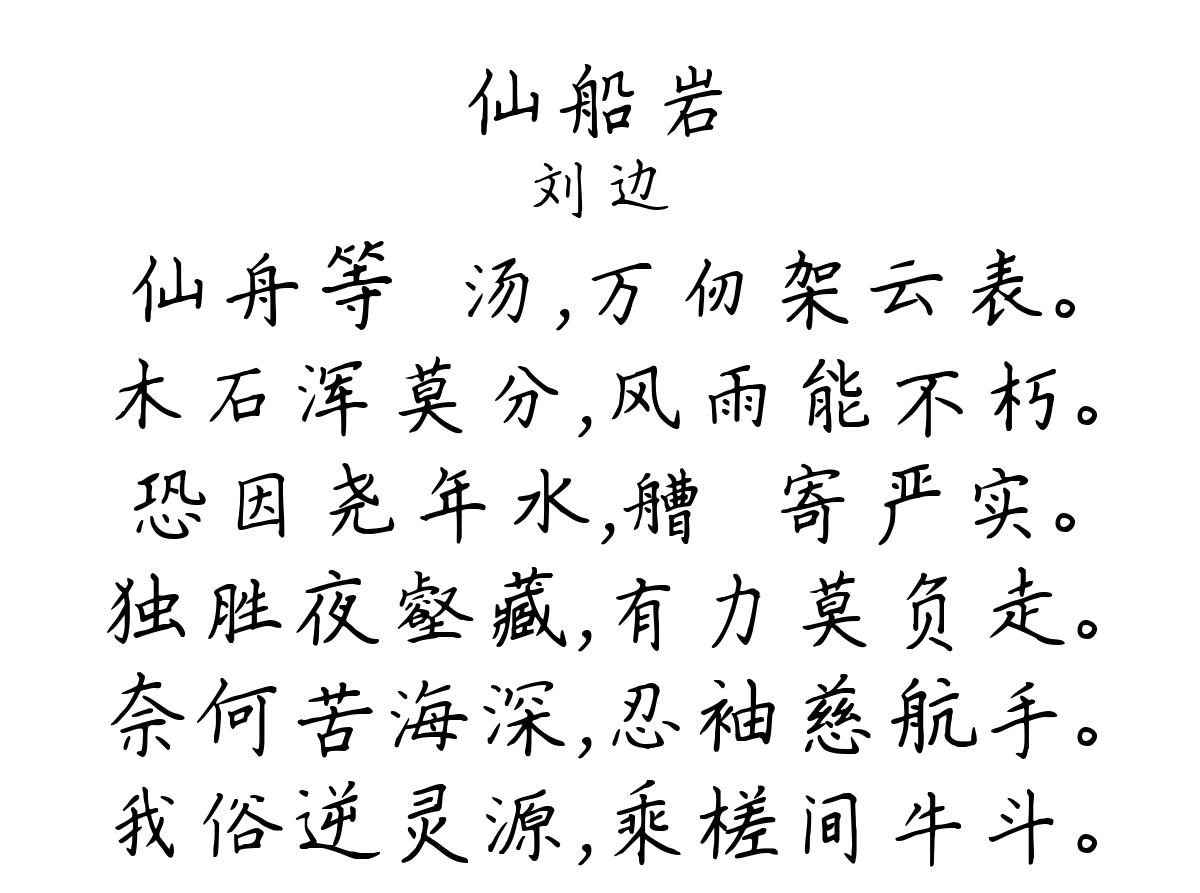 仙船岩
刘边
仙舟等 汤,万仞架云表。
木石浑莫分,风雨能不朽。
恐因尧年水,艚 寄严实。
独胜夜壑藏,有力莫负走。
奈何苦海深,忍袖慈航手。
我俗逆灵源,乘槎间牛斗。